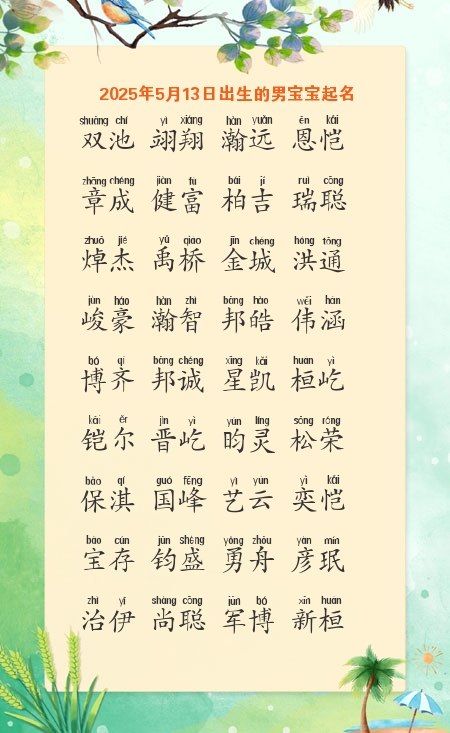 2025年5月13日出生的男宝宝起名
shuāng chí yì xiáng hàn yuǎn ēn kǎi
双池 翊翔 瀚远 恩恺
zhāng chéng jiàn fù bǎi jí ruì cōng
章成 健富 柏吉 瑞聪
zhuō jié yǔ qiáo jīn chéng hóng tōng
焯杰 禹桥 金城 洪通
jùn háo hàn zhì bāng hào wěi hán
峻豪 瀚智 邦皓 伟涵
bó qí bāng chéng xīng kǎi huán yì
博齐 邦诚 星凯 桓屹
kǎi ěr jìn yì yún líng sōng róng
铠尔 晋屹 昀灵 松荣
bǎo qí guó fēng yì yún yì kǎi
保淇 国峰 艺云 奕恺
bǎo cún jūn shèng yǒng zhōu yàn mín
宝存 钧盛 勇舟 彦珉
zhì yī shàng cōng jūn bó xīn huán
治伊 尚聪 军博 新桓